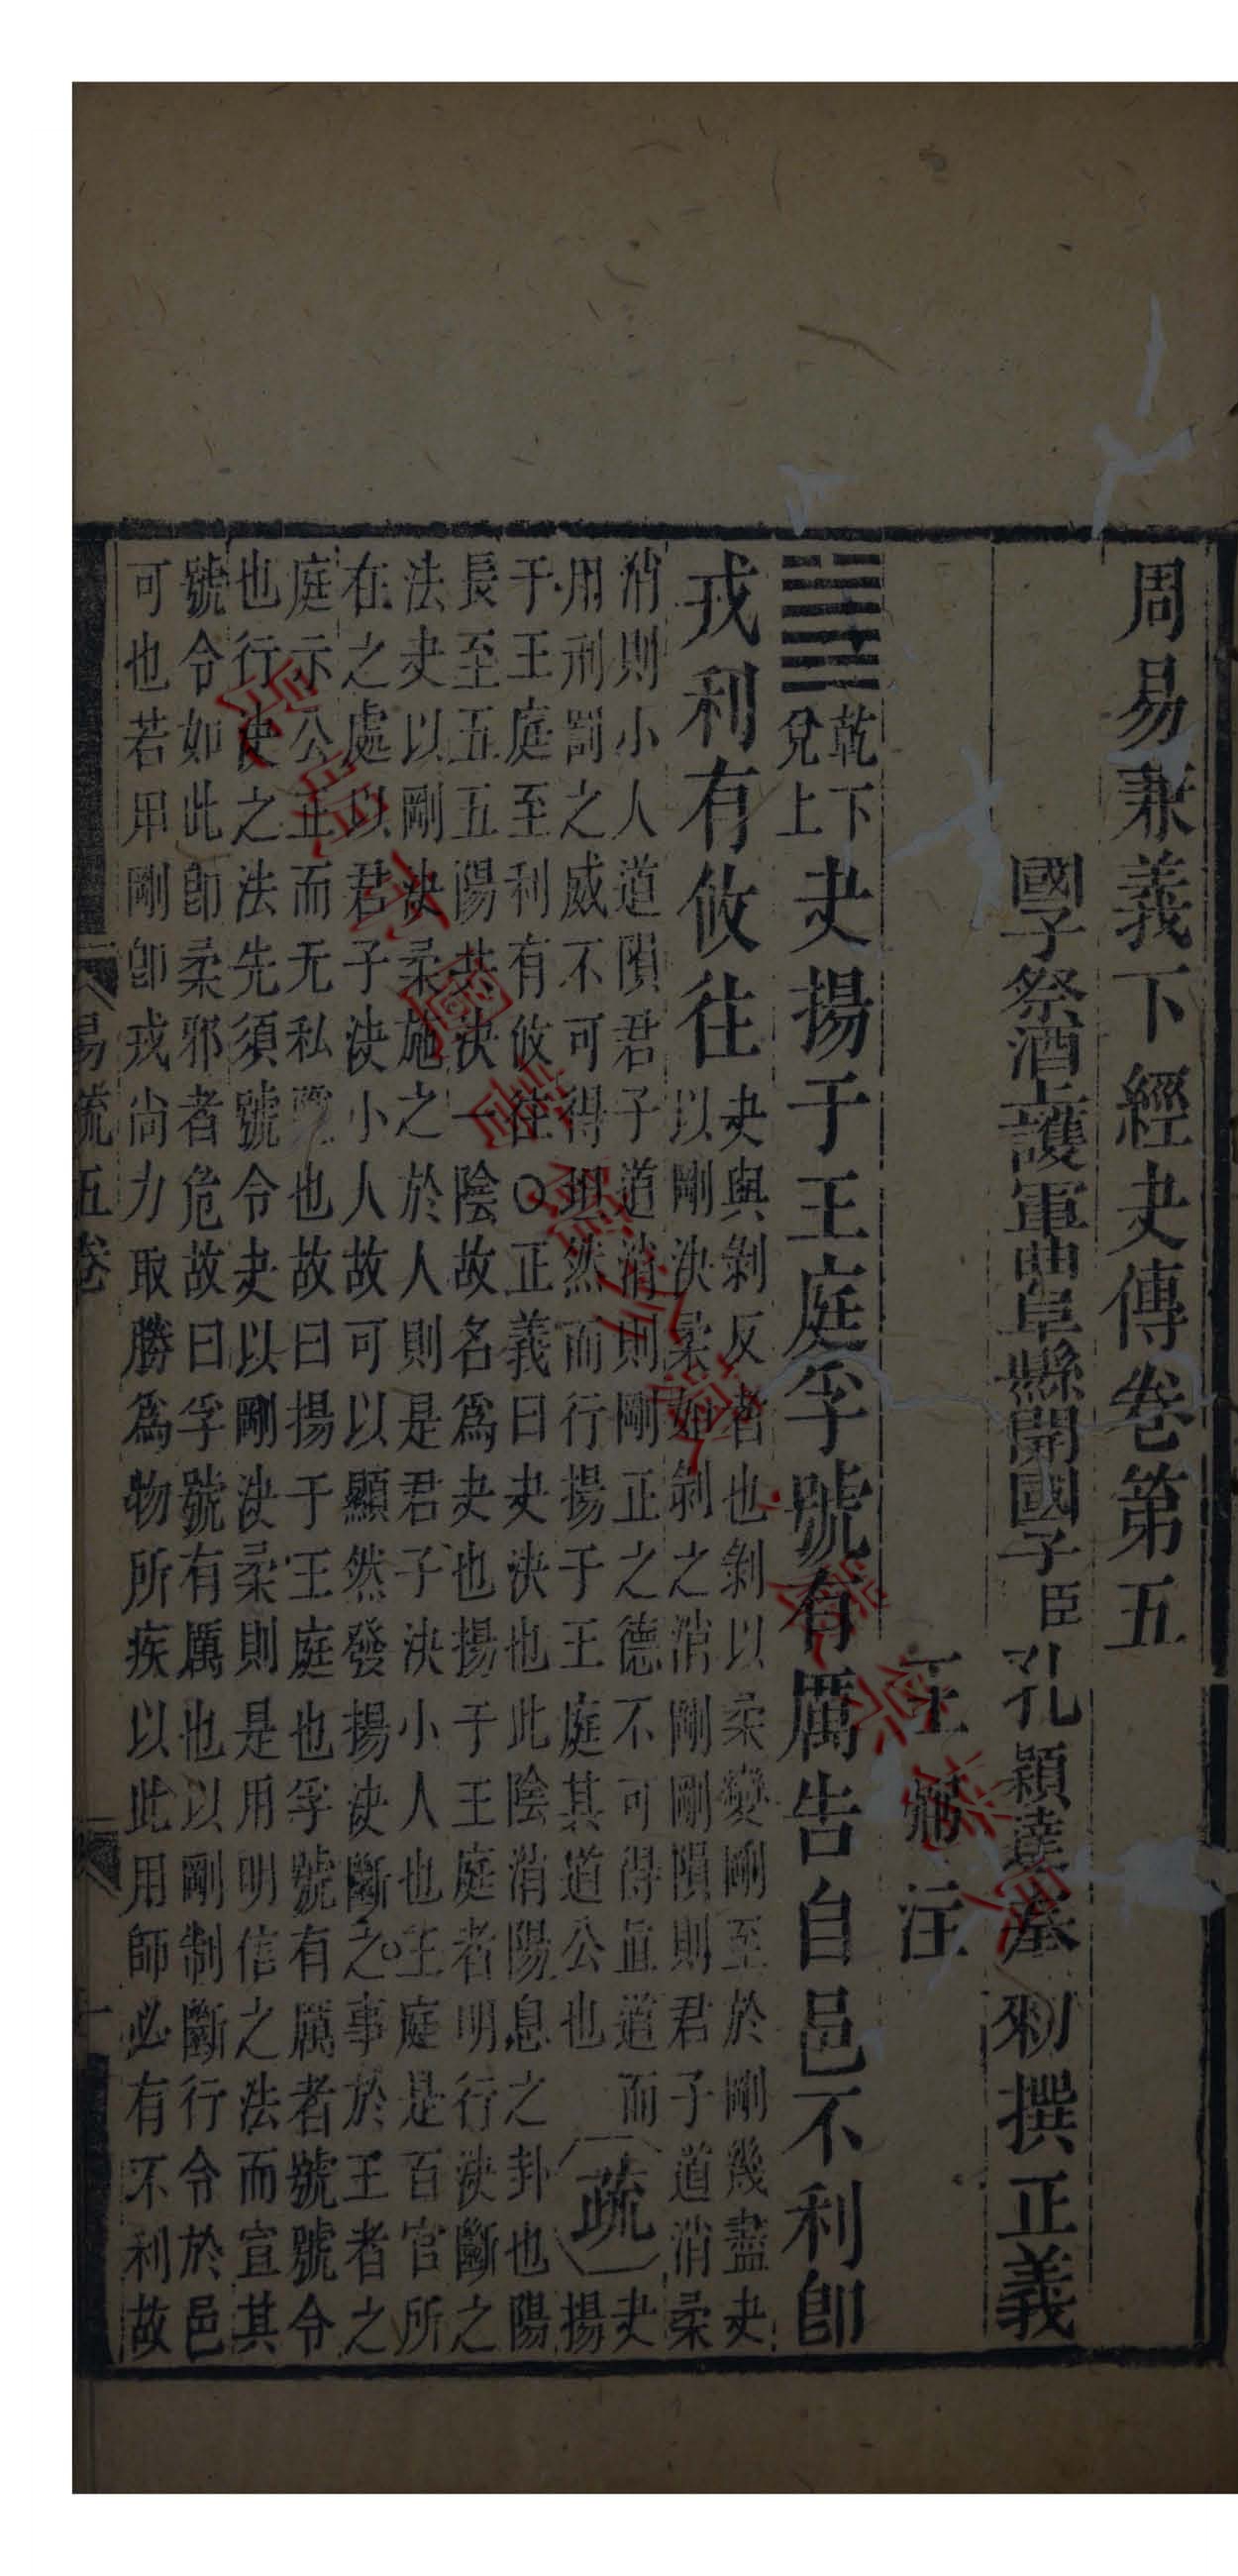 周易兼義下經夬傳卷第五
國子祭酒上護軍曲阜縣開國子臣孔穎達奉勑撰正義
王弼注
䷪乾下兌上夬揚于王庭孚號有厲告自邑不利即
戎利有攸往
夬與剝反者也剝以柔變剛至於剛幾盡夬
以剛決柔如剝之消剛剛隕則君子道消柔
消則小人道隕君子道消則剛正之德不可得直道而
用刑罰之威不可得坦然而行揚于王庭其道公也
疏
夬揚
于王庭至利有攸往○正義曰夬決也此陰消陽息之卦也陽
長至五五陽共決一陰故名爲夬也揚于王庭者明行決斷之
法夬以剛決柔施之於人則是君子決小人也王庭是百官所
在之處以君子決小人故可以顯然發揚決斷之事於王者之
庭示公正而无私隱也故曰揚于王庭也孚號有厲者號號令
也行決之法先須號令夬以剛決柔則是用明信之法而宣其
號令如此即柔邪者危故曰孚號有厲也以剛制斷行令於邑
可也若用剛即戎尚力取勝爲物所疾以此用師必有不利故
易疏五卷
一